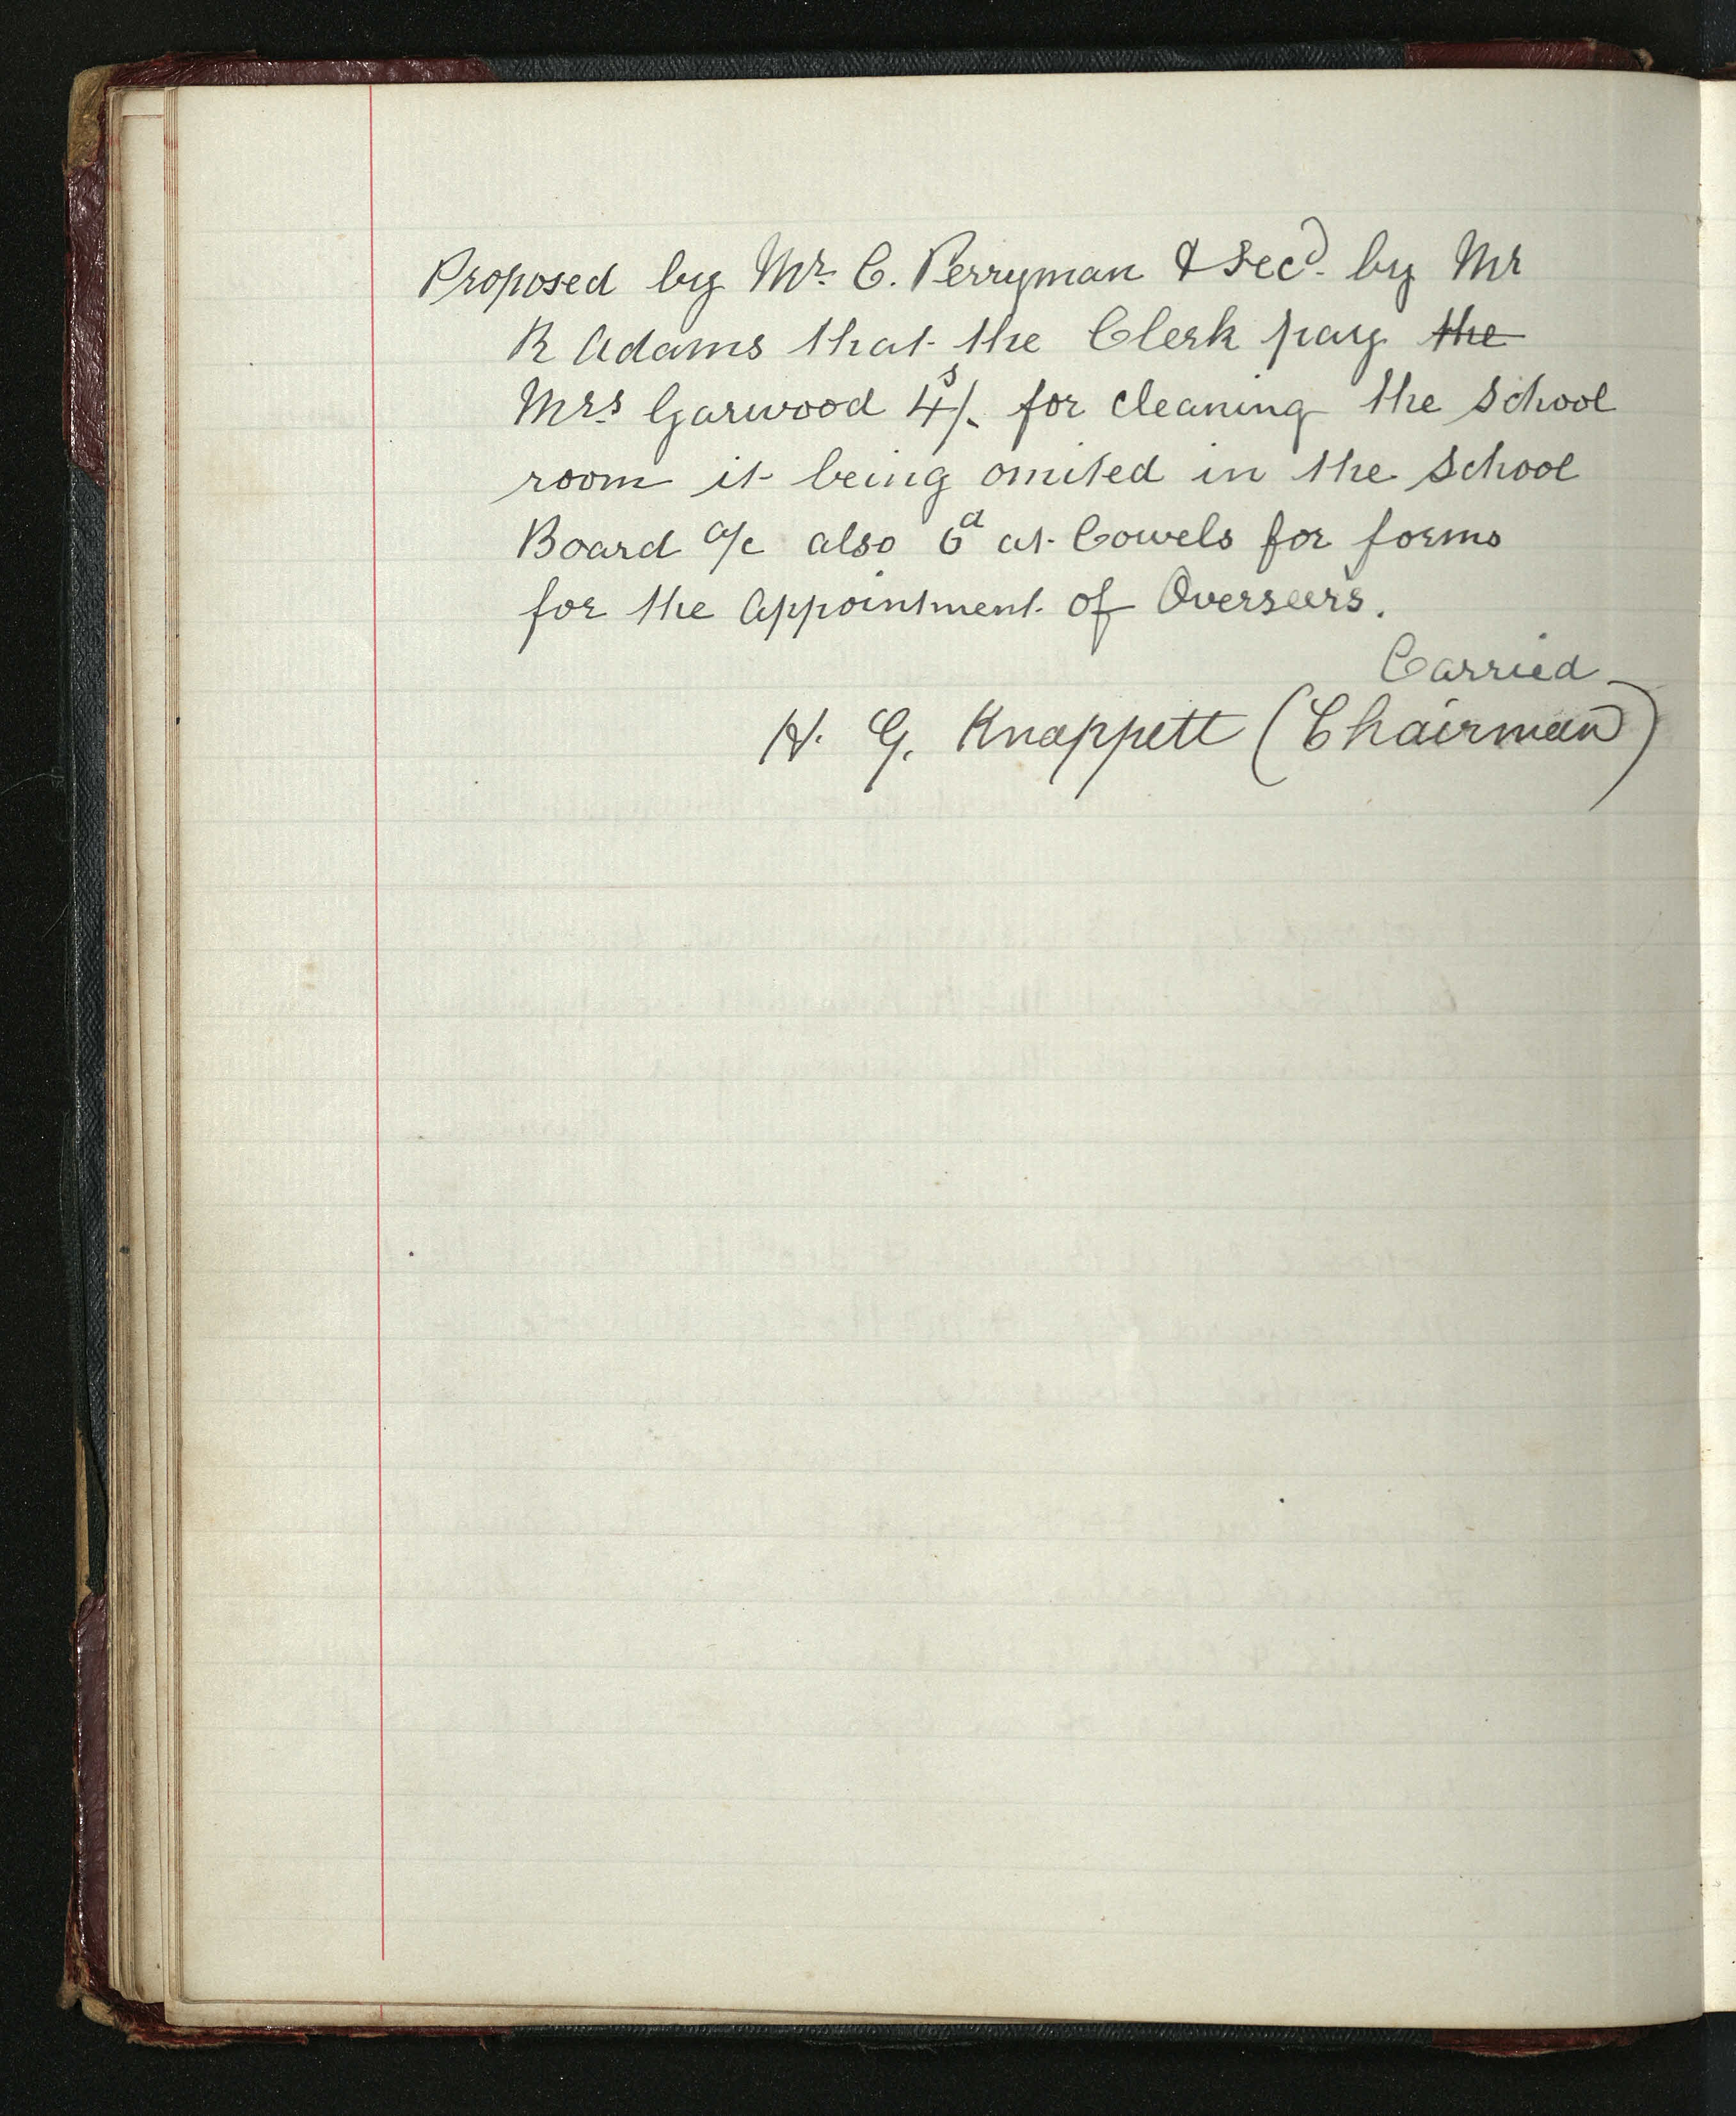 Proposed by Mr. C. Perryman & Secd. by Mr
R Adams that the Clerk pay ~~the~~
Mrs Garwood 4s/- for cleaning the School
room it being omited in the School
Board a/c also 6d at Cowels for forms
for the Appointment of Overseers.
Carried
H. G. Knappett (Chairman)